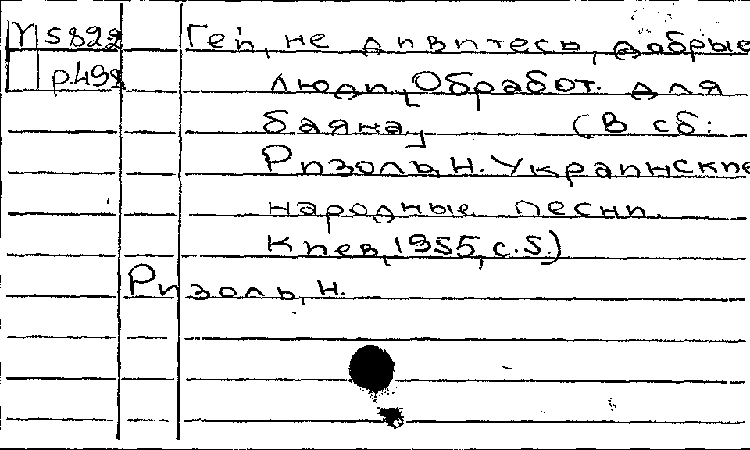 М 5822 Гей, не дивитесь, дабрые
р498 люди, [Обработ. для
баяна] (В сб:
Ризоль, Н. Украинские
народные песни.
Киев, 1955, с.5.)
Ризоль, Н.